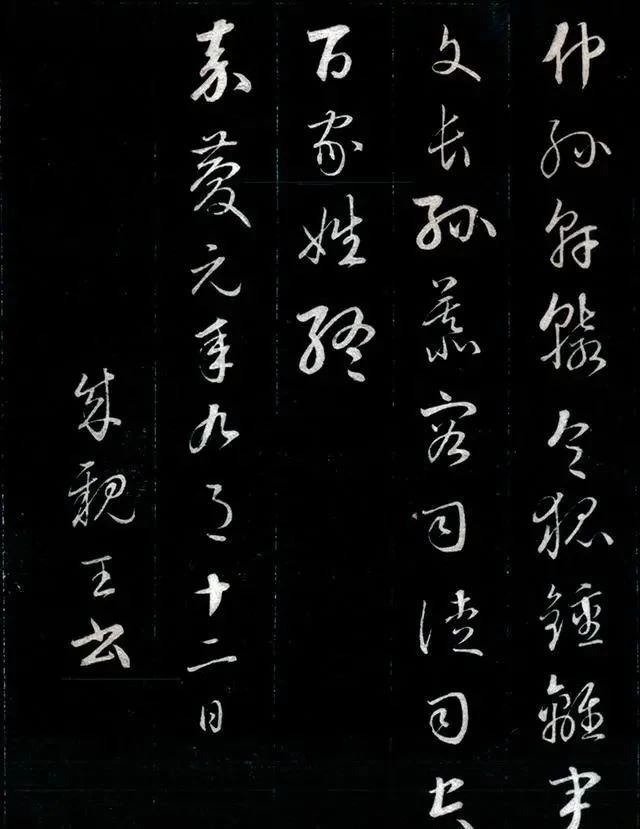 仲孫軒轅令狐鍾離宇
文長孫慕容司徒司空
百家姓終
嘉慶元年九月十二日
成親王書